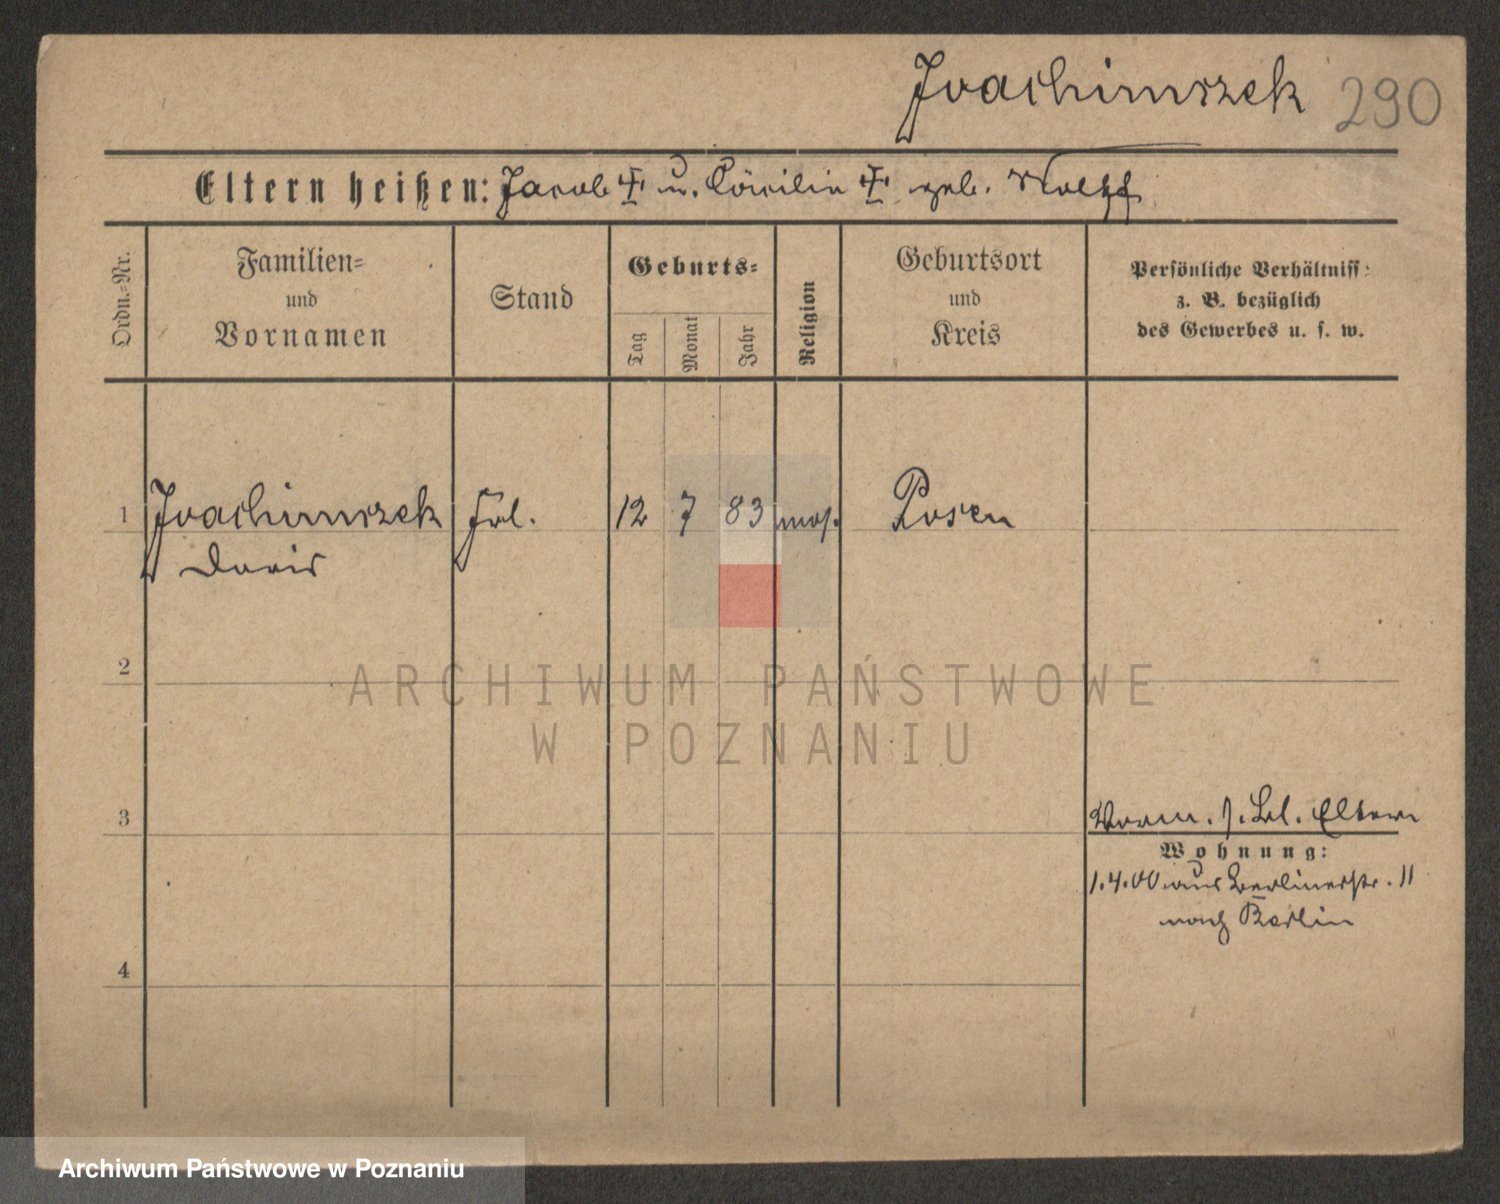 Joachimczek 290
Eltern heißen: Jacob ☩ u. Cäcilie ☩ geb. Wolff
Ordn.-Nr.
Familien-
und
Vornamen
Stand
Geburts-
Tag
Monat
Jahr
Religion
Geburtsort
und
Kreis
Persönliche Verhältniss
z. B. bezüglich
des Gewerbes u. s. w.
1 Joachimczek Frl. 12 7 83 mos. Posen
Doris
2
ARCHIWUM PAŃSTWOWE
W POZNANIU
3
Vorm. s. Bl. Eltern
Wohnung:
1.4.00 aus Berlinerstr. 11
nach Berlin
4
Archiwum Państwowe w Poznaniu